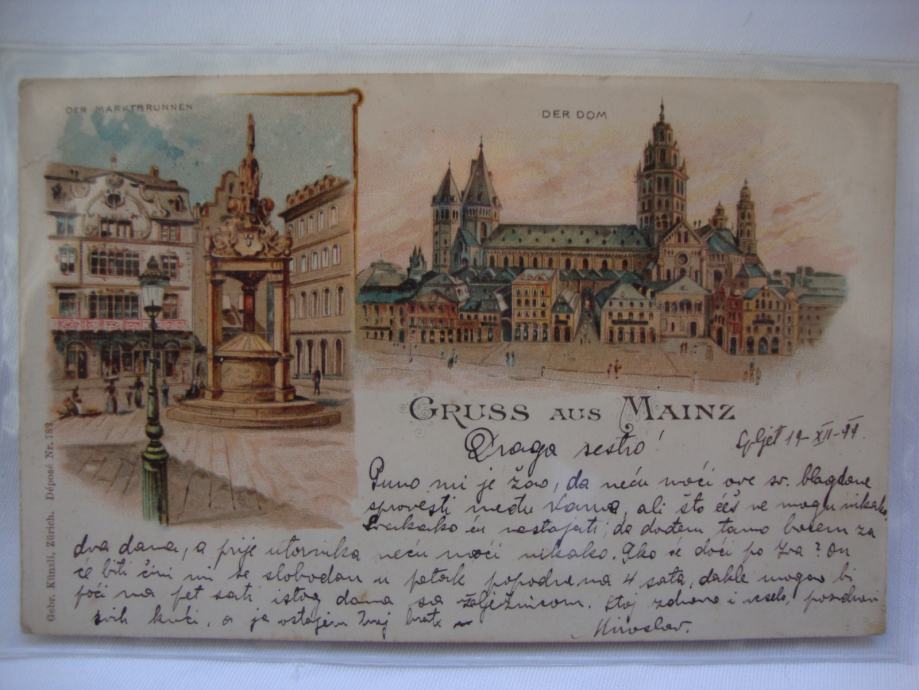 DER MARKTBRUNNEN
DER DOM
GRUSS AUS MAINZ
Draga sestro!
19-XII-99.
Puno mi je žao, da neću moći ove sv. blagdane
sprovesti među Vama, ali što ćeš ne mogu nikako.
Svakako ću nastojati, da dođem tamo barem za
dva dana, a prije utornika neću moći nikako. Ako će doći po
On
će biti čini mi se slobodan u petak popodne na 4 sata, dakle mogao bi
poći na pet sati istog dana sa željeznicom. Stoj zdravo i veselo, pozdravi
svih kući, a ja ostajem tvoj brat
Miroslav.
Gebr. Künzli, Zürich. Déposé Nr. 182